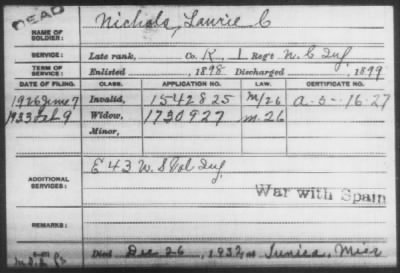 DEAD
NAME OF SOLDIER: Nichols, Laurie C
SERVICE: Late rank, Co. K, 1 Reg't N. C Inf
TERM OF SERVICE: Enlisted 1898 Discharged 1899
DATE OF FILING. CLASS. APPLICATION NO. LAW. CERTIFICATE NO.
1926 June 7 Invalid, 1542825 M/26 A-5-16-27
1933 Feb 9 Widow, 1730927 M-26
Minor,
ADDITIONAL SERVICES: E 43 U.S Vol Inf
War with Spain
REMARKS:
Died Dec 26, 1932, at Tunica, Miss